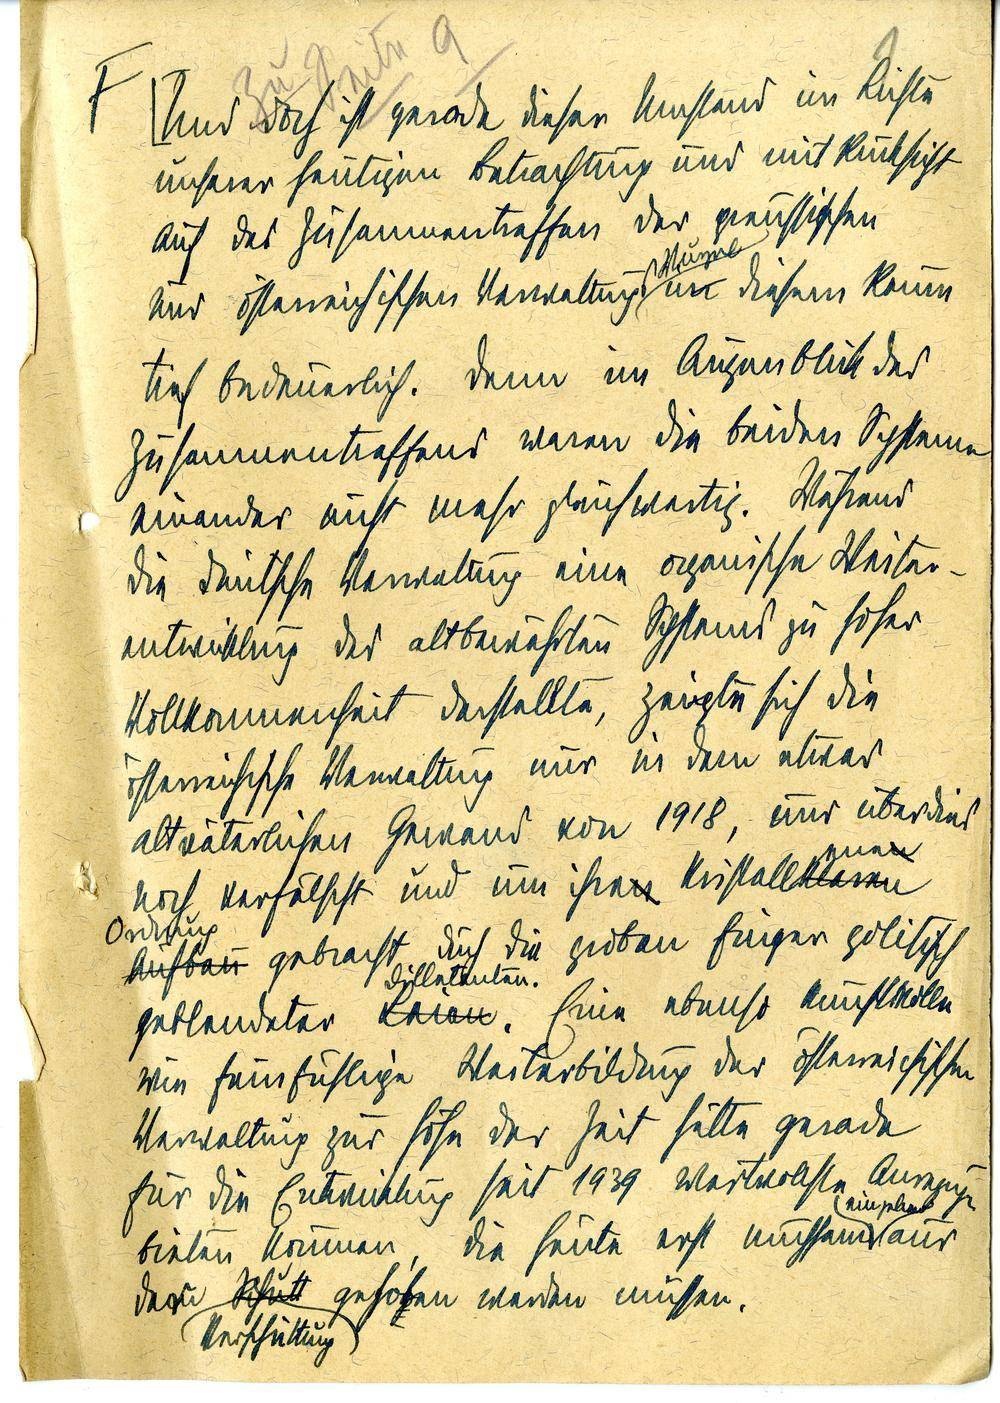 Zu Seite 9
F [Und doch ist gerade dieser Umstand im Lichte
unserer heutigen Betrachtung und mit Rücksicht
auf das Zusammentreffen der preussischen
und österreichischen Verwaltung in diesem Raum
tief bedauerlich. Denn im Augenblick des
Zusammentreffens waren die beiden Systeme
einander nicht mehr gleichwertig. Während
die deutsche Verwaltung eine organische Weiter-
entwicklung des altbewährten Systems zu hoher
Vollkommenheit darstellte, zeigte sich die
österreichische Verwaltung nur in dem etwas
altväterlichen Gewand von 1918, und überdies
enen
noch verfälscht und um ihren kristallklaren
Ordnung
Aufbau gebracht durch die groben Finger politisch
Dilletanten.
geblendeter Laien. Eine ebenso kunstvolle
wie feinfühlige Weiterbildung der österreichischen
Verwaltung zur Höhe der Zeit hätte gerade
für die Entwicklung seit 1939 wertvollste Anregung
einzeln
bieten können, die heute erst mühsam aus
dem Schutt gehoben werden müssen.
(Verschüttung)